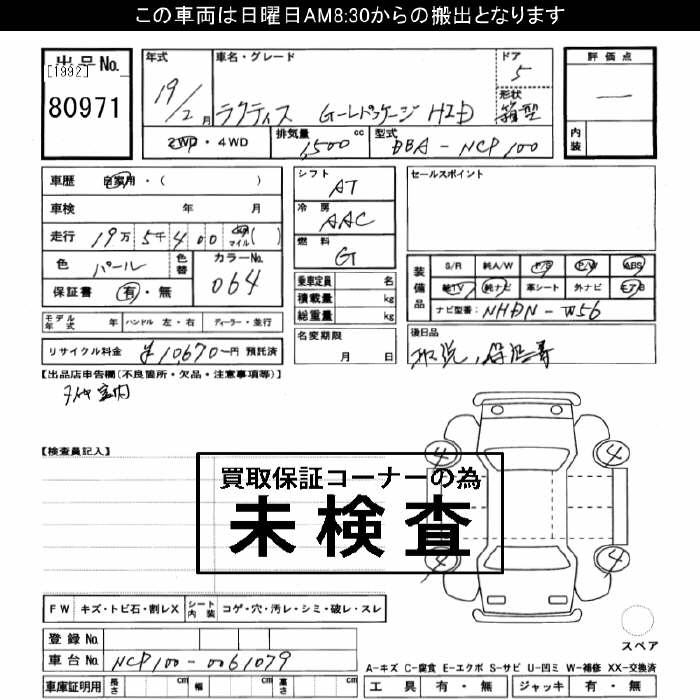 この車両は日曜日AM8:30からの搬出となります
出品No.
[1992]
80971
年式
19/2月
車名・グレード
ラクティス G-Lパッケージ HID
ドア
5
形状
箱型
2WD・4WD
排気量 1,500 cc
型式 DBA-NCP100
評価点
―
内装
車歴 自家用・( )
車検 年 月
走行 19万5千400 km マイル( )
色 パール
色替
カラーNo. 064
保証書 有・無
モデル年式 年 ハンドル 左・右 ディーラー・並行
リサイクル料金 ¥10,670-円 預託済
シフト AT
冷房 AAC
燃料 G
乗車定員 名
積載量 kg
総重量 kg
名変期限
月 日
セールスポイント
装備品
S/R 純A/W P/S P/W ABS
純TV 純ナビ 革シート 外ナビ エアB
ナビ型番: NHDN-W56
後日品
取説、保証書
【出品店申告欄(不良箇所・欠品・注意事項等)】
室内
【検査員記入】
買取保証コーナーの為
未検査
4 4
4 4
FW キズ・トビ石・割レX シート内装 コゲ・穴・汚レ・シミ・破レ・スレ
登録No.
車台No. NCP100-0061079
車庫証明用 長さ cm 幅 cm 高さ cm
スペア
A-キズ C-腐食 E-エクボ S-サビ U-凹ミ W-補修 XX-交換済
工具 有・無 ジャッキ 有・無